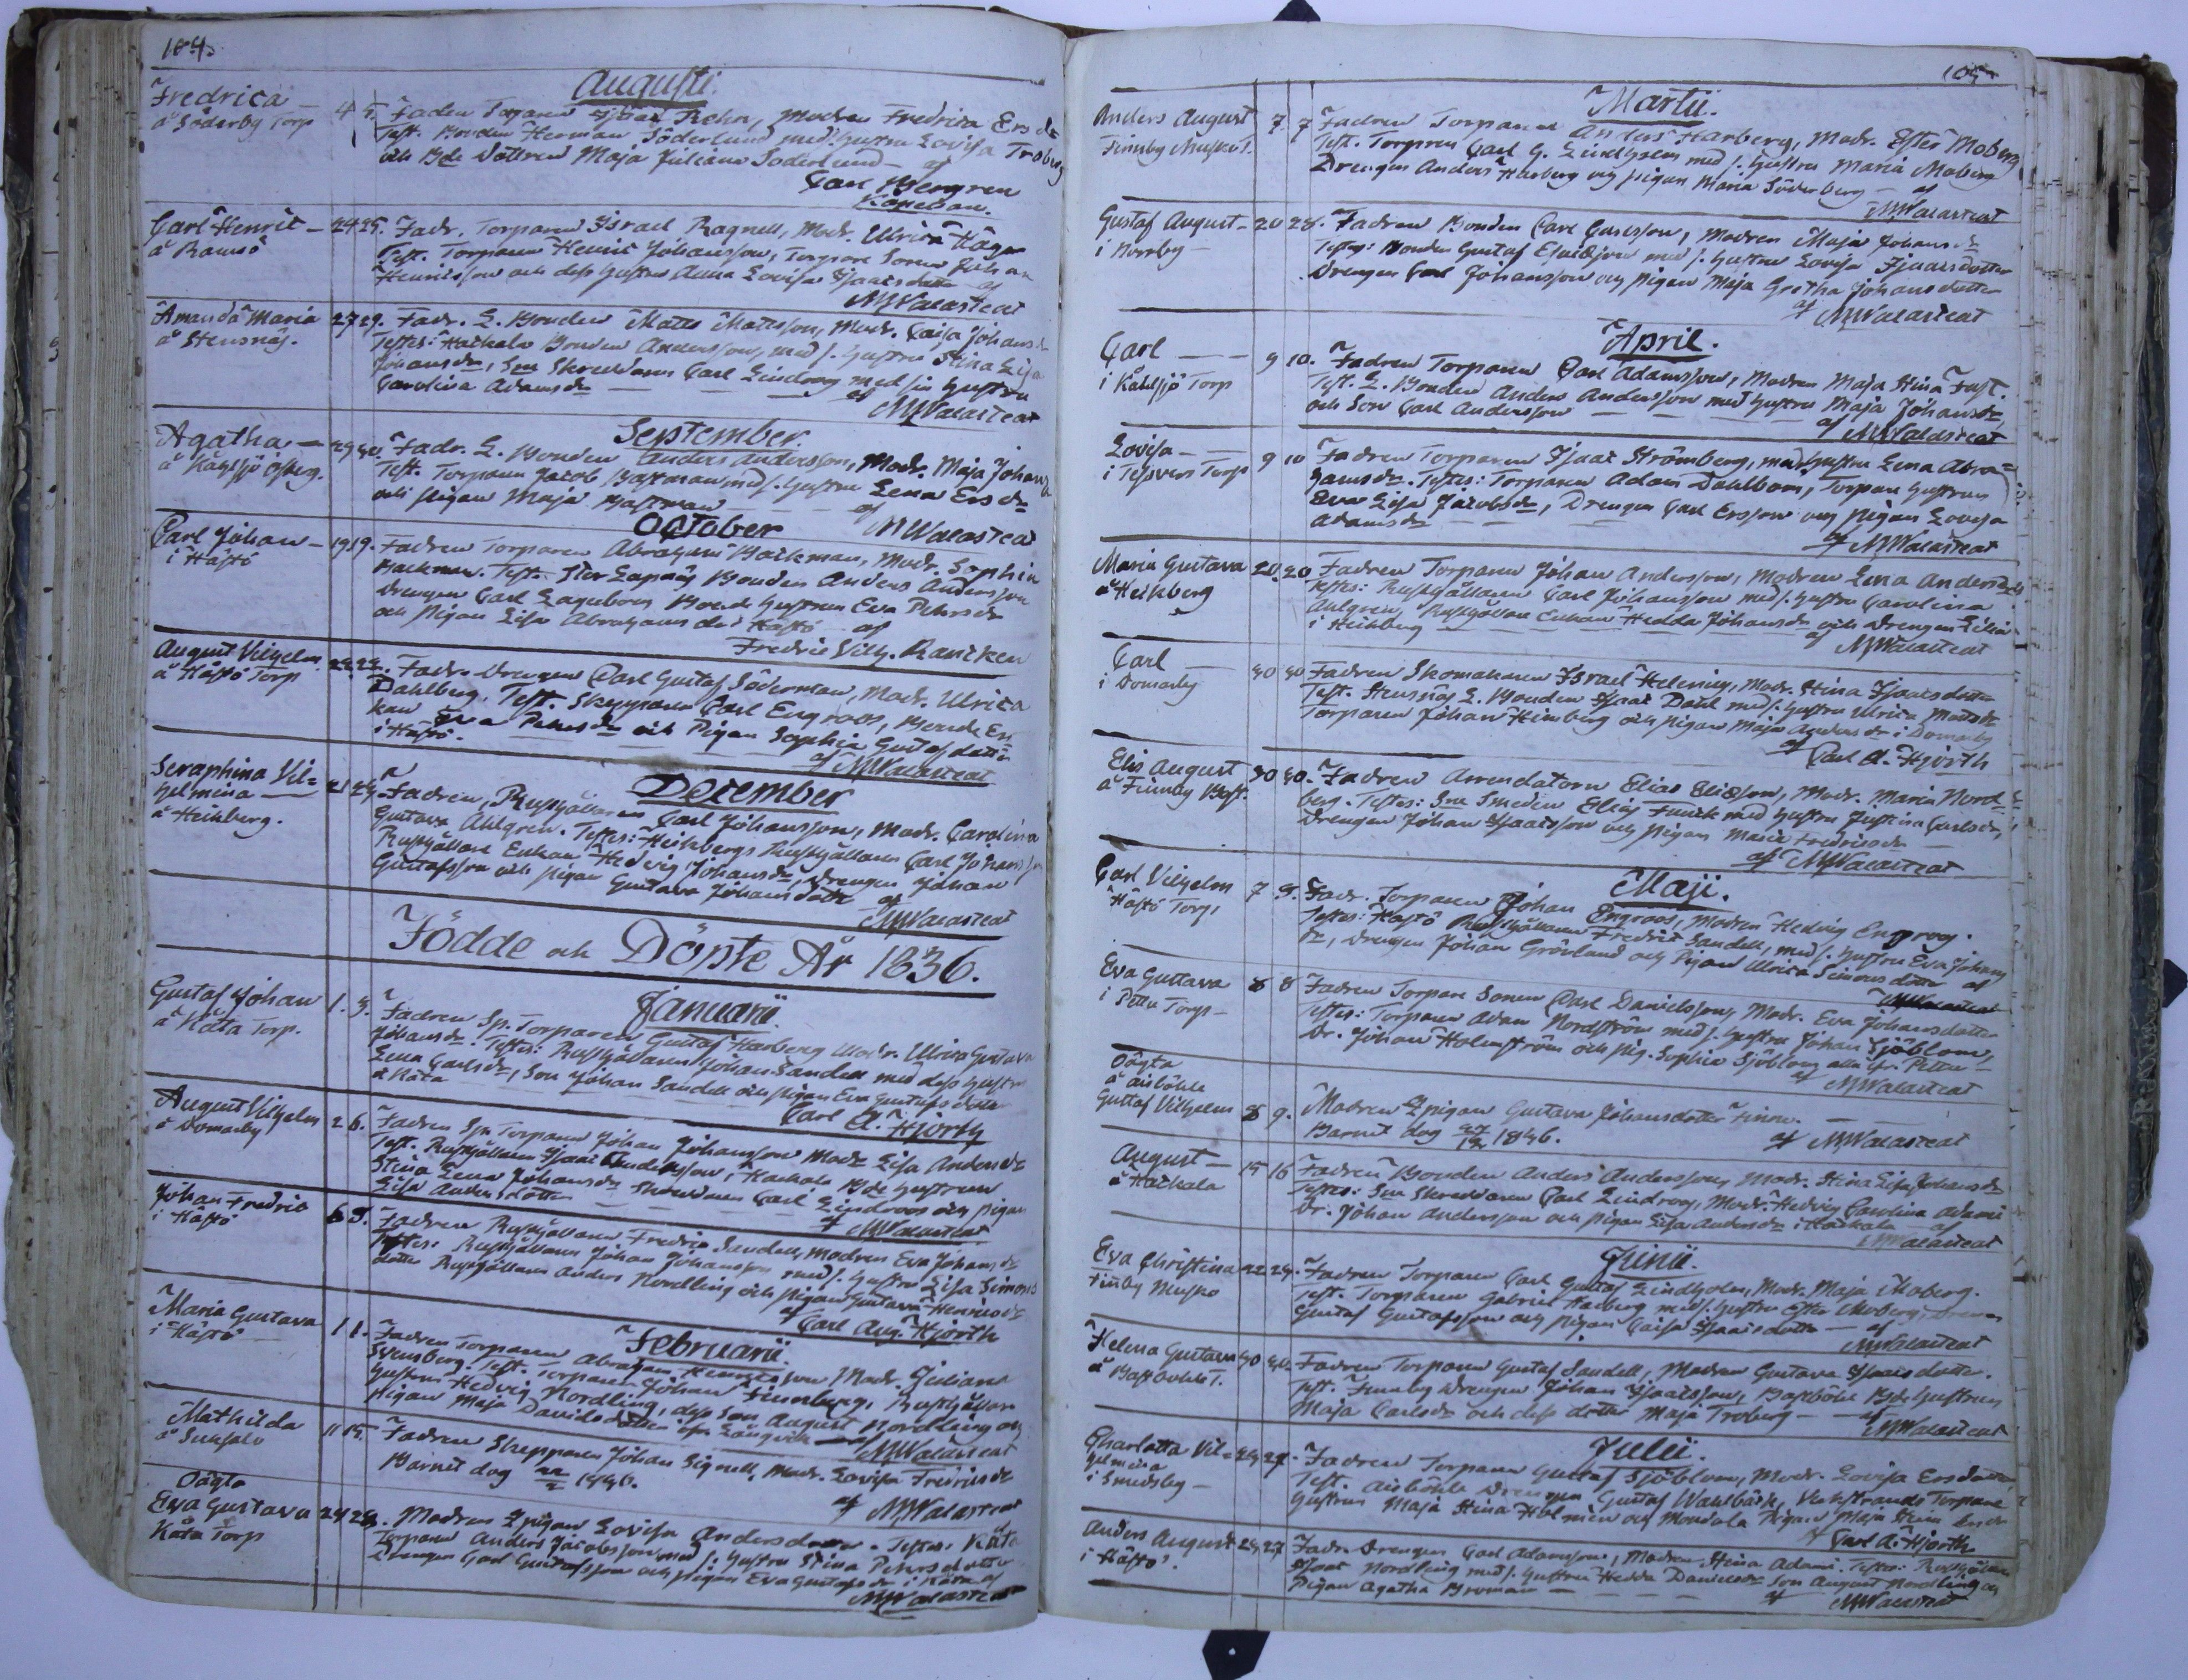 104.
Augusti.
Fredrica
å Söderby Torp
4 5. Fadren Torparen Isaac Modren Fredrica Ersdr
Test. Bonden Herman Söderlund med hustru Lovisa Troberg
och Bds Dottren Maja Juliana Söderlund af
Carl Bergren
Capellan.
Carl Henric
å Ramsö
24 25. Fadr. Torparen Israel Ragnell, Modr. Ulrica Häger
Test. Torparen Henric Johansson, Torpare Sonen Johan
Henricsson och dess hustru Anna Lovisa Isaacsdotter af
M Walasteat
Amanda Maria
å Stensnäs.
27 29. Fadr. L. Bonden Matts Mattsson, Modr. Caisa Johansdr
Testes: Haikala Bonden Andersson, med s. hustru Stina Lisa
Johansdr, Sne Skreddaren Carl Lindroos med sin hustru
Carolina Adamsdr af
M Walasteat
September.
Agatha
å Kählsjö
29 30. Fadr. L. Bonden Anders Andersson, Modr. Maja Johansdr
Test. Torparen Jacob Bastman med s. hustru Lena Ersdr
och pigan Maja Bastman af
M Walasteat
October
Carl Johan
i Hästö
19 19. Fadren Torparen Abraham Backman, Modr. Sophia
Backman. Test. Stor Lapnäs Bonden Anders Andersson
drengen Carl Lagerbom Bonde hustrun Eva Pehrsdr
och pigan Lisa Abrahamsdr i Hästö af
Fredric Vilh. Rancken
August Vilhelm
å Hästö Torp
Fadr. Drengen Carl Gustaf Söderman, Modr. Ulrica
Dahlberg. Test. Skepparen Carl Engroos, Bonde En
kan Eva Pehrsdr och Pigan Sophia Gustafsdotter
i Hästö.
af M Walasteat
December
Seraphina Vil=
helmina
å Heikberg.
21 24 Fadren, Rusthållaren Carl Johansson, Modr. Carolina
Gustava Ahlgren. Testes: Heikbergs Rusthållaren Carl Johansson
Rusthållare Enkan Hedvig Johansdr, Drengen Johan
Gustafsson och pigan Gustava Johansdotter af
M Walasteat
Födde och Döpte År 1836.
Januarii.
Gustaf Johan
å Käta Torp.
1. 3. Fadren Sp. Torparen Gustaf Harberg Modr. Ulrica Gustava
Johansdr. Testes: Rusthållaren Johan Sandell med dess hustru
Lena Carlsdr, Son Johan Sandell och pigan Eva Gustafsdotter
å Käta
Carl A. Hjorth
August Vilhelm
å Domarby
2 6. Fadren Sp. Torparen Johan Johansson Modr Lisa Andersdr
Test. Rusthållaren Isaac Andersson i Haikala Bds hustrun
Stina Lena Johansdr Skreddaren Carl Lindroos och pigan
Lisa Andersdotter af
M Walasteat
Johan Fredric
i Hästö
6 8. Fadren Rusthållaren Fredric Sandell, Modren Eva Johansdr
Testes: Rusthållaren Johan Johansson med s. hustru Lisa Simons
dotter Rusthållaren Anders Nordling och pigan Gustava Henricsdr
af
Carl Aug. Hjorth
Februarii.
Maria Gustava
i Hästö
1 1. Fadren Torparen Abraham Henricsson Modr. Juliana
Svensberg. Test. Torparen Johan Finnberg, Rusthållare
hustrun Hedvig Nordling, dess Son August Nordling och
pigan Maja Davidsdotter ifrn Långvik
M Walasteat
Mathilda
å Suksalo
11 15. Fadren Skepparen Johan Signell, Modr. Lovisa Fredricsdr
Barnet dog 22/2 1836.
af M Walasteat
Oägta
Eva Gustava
Käta Torp
24 28. Modren Lpigan Lovisa Andersdotter. Testes: Käta
Torparen Anders Jacobsson med s. hustru Stina Pehrsdotter
Drengen Carl Gustafsson och pigan Eva Gustafsdr i Käta af
M Walasteat
105
Martii.
Anders August
Finnby Muskot.
7. 7 Fadren Torparen Anders Harberg, Modr. Ester Moberg
Test. Torpren Carl G. Lindholm med s. hustru Maria Moberg
Drengen Anders Harberg och pigan Maria Söderberg af
M Walasteat
Gustaf August
i Norrby
20 28. Fadren Bonden Carl Carlsson, Modren Maja Johansdr
Testes: Bonden Gustaf Eliasson med s. hustru Lovisa Isaacsdotter
Drengen Carl Johansson och pigan Maja Gretha Johansdotter
af M Walasteat
April.
Carl
i Kählsjö Torp
9 10. Fadren Torparen Carl Adamsson, Modren Maja Stina Fast.
Test. L. Bonden Anders Andersson med hustru Maja Johansdr
och Son Carl Andersson af M Walasteat
Lovisa
i Tesvars Torp
9 10 Fadren Torparen Isaac Strömberg, med hustru Lena Abra=
hamsdr. Testes: Torparen Adam Dahlbom, Torpare hustrun
Eva Lisa Jacobsdr, Drengen Carl Ersson och pigan Lovisa
Adamsdr
af M Walasteat
Maria Gustava
å Heikberg
20 20 Fadren Torparen Johan Andersson, Modren Lena Andersdr
Testes: Rusthållaren Carl Johansson med s. hustru Carolina
Ahlgren, Rusthållare Enkan Hedda Johansdr och drengen
i Heikberg
af M Walasteat
Carl
i Domarby
30 30 Fadren Skomakaren Israel Helenius, Modr. Stina Isaacsdotter
Test. Stensnäs L. Bonden Isaac Dahl med s. hustru Ulrica Mattsdr
Torparen Johan Heinberg och pigan Maja Andersdr i Domarby
af
Carl A. Hjorth
Elis August
å Finnby
30 30. Fadren Arrendatorn Elias Eliasson, Modr. Maria Nord
berg. Testes: Sne Smeden Elias Funck med hustru Justina Carlsdr,
Drengen Johan Isaacsson och pigan Maria Fredricsdr
af M Walasteat
Maji.
Carl Vilhelm
Hästö Torp
7 8. Fadr. Torparen Johan Engroos, Modren Hedvig Engroos.
Testes: Hästö Rusthållaren Fredric Sandell, med s. hustru Eva Johans
dr, Drengen Johan Grönlund och Pigan Ulrica Simonsdotter af
M Walasteat
Eva Gustava
i Pettu Torp
8 8 Fadren Torpare Sonen Carl Danielsson, Modr. Eva Johansdotter
Testes: Torparen Adam Nordström med s. hustru Johan Sjöblom,
Dr. Johan Holmström och pig. Sophia Sjöblom alla fr. Pettu
af M Walasteat
Oägta
å Aisböhle
Gustaf Vilhelm
8 9. Modren Lpigan Gustava Johansdotter Finne.
Barnet dog 27/12 1836. af M Walasteat
August
å Haikala
15 16 Fadren Bonden Anders Andersson, Modr. Stina Lisa Johansdr
Testes: Sne Skreddaren Carl Lindroos, Modr. Hedvig Carolina Adams
Dr. Johan Andersson och pigan Lisa Andersdr i Haikala af
M Walasteat
Junii.
Eva Christina
Finnby Muskot
22 24. Fadren Torparen Carl Gustaf Lindholm, Modr. Maja Moberg.
Test. Torparen Gabriel Harberg med s. hustru Ester Moberg, Drengen
Gustaf Gustafsson och pigan Caisa Isaacsdotter af
M Walasteat
Helena Gustava
å Bastböhle T.
30 30. Fadren Torparen Gustaf Sandell, Modren Gustava Isaacsdotter.
Test. Finnby Drengen Johan Isaacsson, Bastböhle Bds hustrun
Maja Carlsdr och dess dotter Maja Troberg af
M Walasteat
Julii.
Charlotta Vil=
helmina
i Smedsby
24 27. Fadren Torparen Gustaf Sjöblom, Modr. Lovisa Ersdotter
Test. Aisböhle Drengen Gustaf Wahlbäck, Torpare
hustrun Maja Stina Holmien och Mondola Pigan Maja Stina
af Carl A. Hjorth
Anders August
i Hästö.
24 27 Fadr. Drengen Carl Adamsson, Modren Stina Adams. Testes: Rusthållaren
Isaac Nordling med s. hustru Hedda Danielsdr Son August Nordling och
Pigan Agatha Broman
af M Walasteat